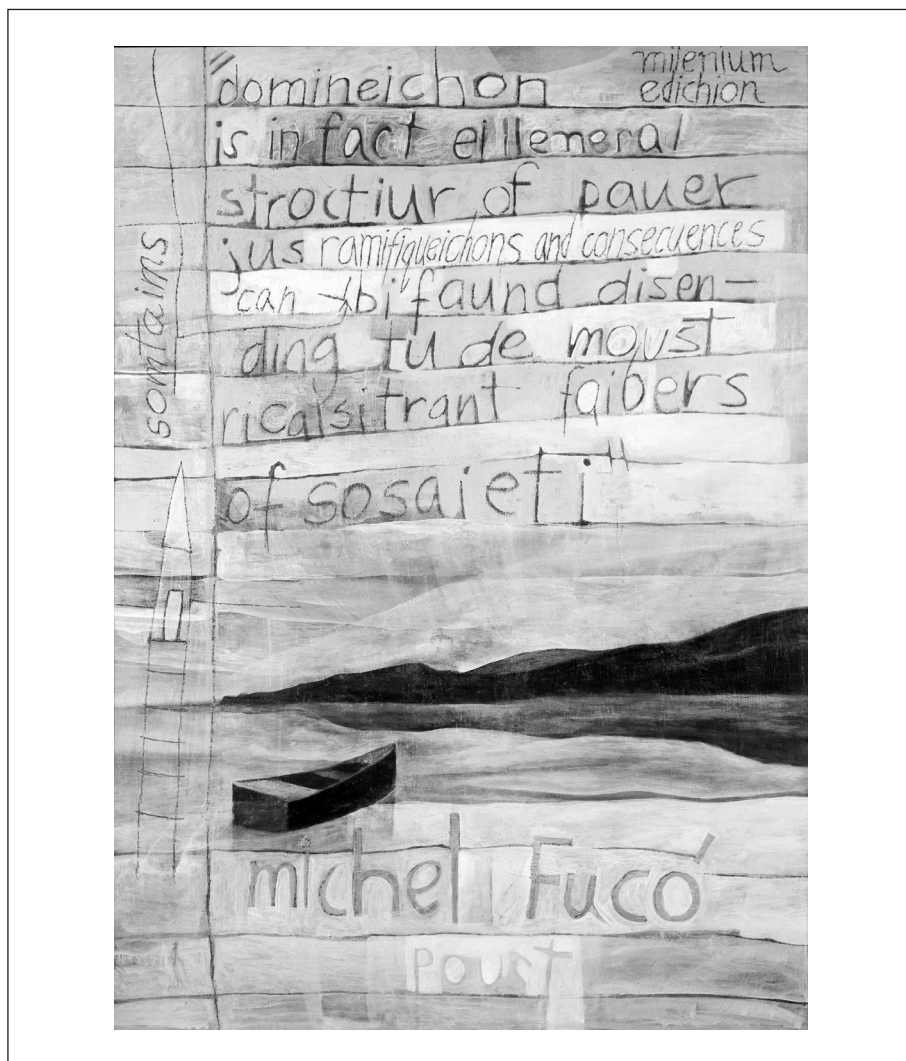 milenium
edichion
"domineichon
is in fact ei llemeral
stroctiur of pauer
jus ramifiqueichons and consecuences
can bi faund disen-
ding tu de moust
ricalsitrant faibers
of sosaieti"
somtaims
michel Fucó
poust